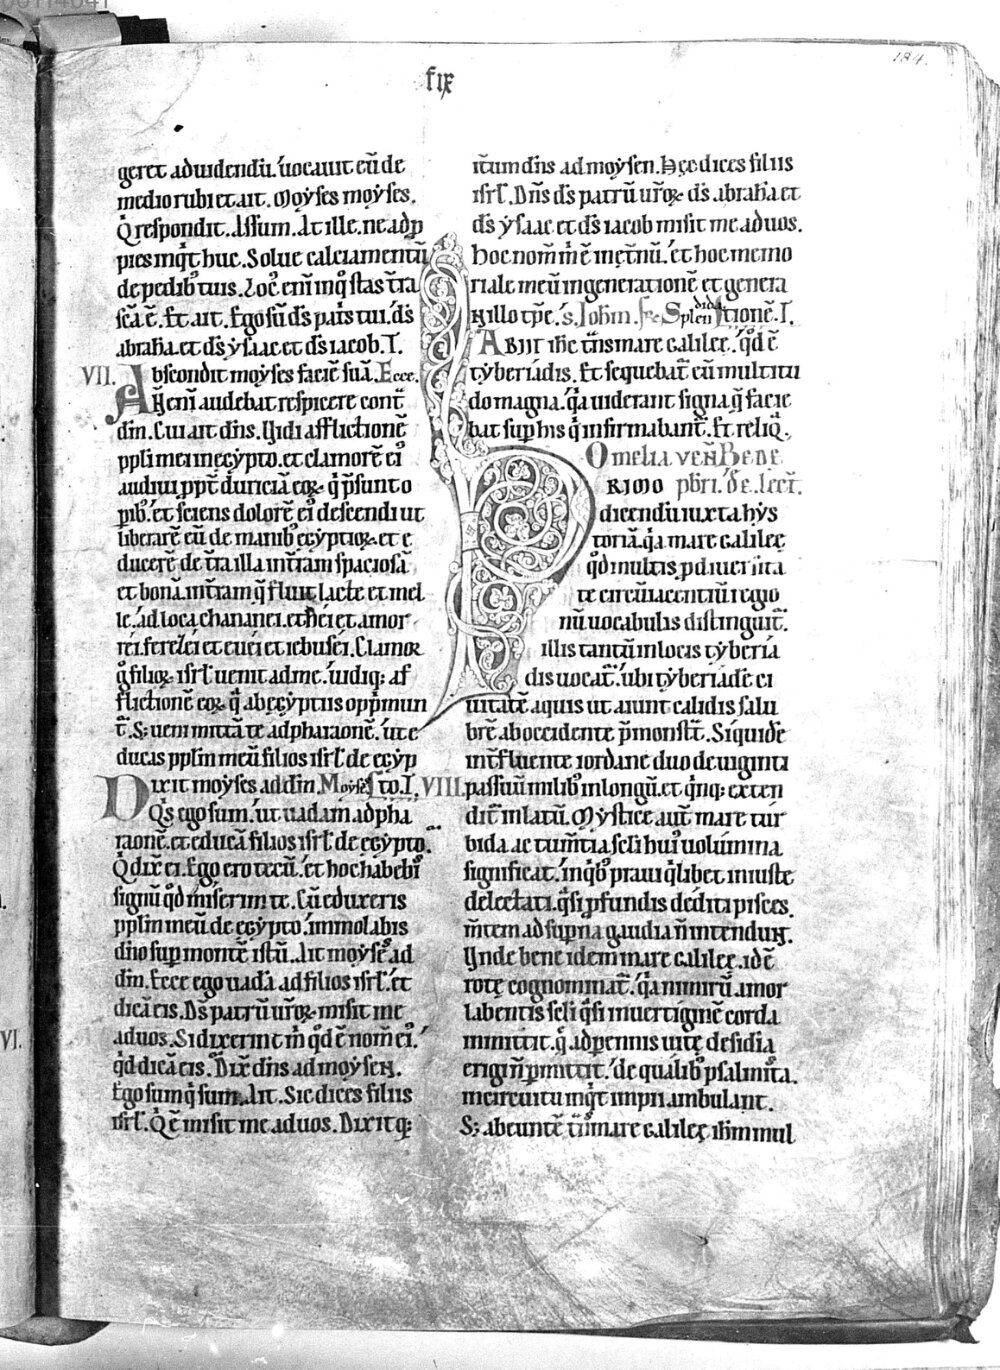 184.
fix
geret ad uidendū. uocauit eū de
medio rubi et ait. Moẏses moẏses.
Q respondit. Assum. At ille. ne adp
pies inqͥt huc. Solue calciamentū
de pedibꝰ tuis. Locꝰ eni in qͦ stas t̄ra
sc̄a ē. Et ait. Ego sū d̄s pat̄s tui. d̄s
abraha. et d̄s ẏsaac. et d̄s iacob. I.
VII. Abscondit moẏses faciē suā. Ecce.
N eni audebat respicere cont̄
dm̄. Cui ait dn̄s. Uidi afflictionē
ppli mei in egẏpto. et clamorē eiꝰ
audiui. ppt̄ duriciā eoꝝ. q̄ p̄sunt o
pibꝰ. et sciens dolorē eiꝰ descendi ut
liberarē eū de manibꝰ egẏptioꝝ. et e
ducerē de t̄ra illa in t̄ram spaciosā
et bonā. in t̄ram q̄ fluit lacte et mel
le. ad loca chananei. et hei et amor
rei. ferezei et euei et iebusei. Clamor
g̊ filioꝝ isrl̄ uenit ad me. uidiq; af
flictionē eoꝝ. q̄ ab egẏptiis opprimun
t̄. S; ueni mittā te ad pharaonē. ut e
ducas pplm̄ meū filios isrl̄ de egẏp
to. I. VIII.
Dixit moẏses ad dm̄. Moẏses
Qͥs ego sum. ut uadam ad pha
raonē. et educā filios isrl̄ de egẏpto.
Q dix̄ ei. Ego ero tecū. et hoc habebͥ
signū qd̄ miserim te. Cū eduxeris
pplm̄ meū de egẏpto. immolabis
dn̄o sup montē istū. Ait moẏses ad
dm̄. Ecce ego uadā ad filios isrl̄. et
dicā eis. D̄s patrū ur̄oꝝ misit me
ad uos. Si dixerint m̄ qd̄ ē nom̄ eiꝰ.
qd dicā eis. Dix̄ dn̄s ad moẏsen.
Ego sum qͥ sum. Ait. Sic dices filiis
isrl̄. Qͥ ē misit me ad uos. Dixitq;
it̄um dn̄s ad moẏsen. Hec dices filiis
isrl̄. Dn̄s d̄s patrū ur̄oꝝ. d̄s abraha et
d̄s ẏsaac. et d̄s iacob misit me ad uos.
hoc nom̄ m̄ ē in et̄nū. et hoc memo
riale meū in generationē et genera
tionē. I.
N illo tp̄e. S. Iohm̄.
ABIIT ihc t̄ns mare galileę. qd̄ ē
tẏberiadis. Et sequebat̄ eū multitu
do magna. qͥa uiderant signa q̄ facie
bat sup his qͥ infirmabant̄. Et reliq̄.
Omelia ven̄ Bede
pbri. de. lect̄.
dicendū iuxta hẏs
toriā. qͥa mare galileę
qd̄ multis p diuersita
te circūiacentiū regio
nū uocabulis distinguit̄.
illis tantū in locis tẏberia
dis uocat̄. ubi tẏberiadē ci
uitatē aquis ut aiunt calidis salu
brē ab occidente p̄monst̄t. Siquidē
int̄fluente iordane duo de uiginti
passuū milibꝰ in longū. et qͥnq; exten
dit̄ in latū. Mẏstice aut̄ mare tur
bida ac tum̄tia scl̄i huiꝰ uolumina
significat. in qͥbꝰ praui qͥlibet iniuste
delectati. qͣsi pfundis dediti pisces.
m̄tem ad sup̄na gaudia n̄ intendunt.
Unde bene idem mare galileę. id ē
rotę cognominat̄. qͥa nimirū amor
labentis scl̄i qͣsi in uertiginē corda
mittit. q̄ ad pennis uitę desidia
erigi n̄ pmittit. de qualibꝰ psalmista.
in circuitu inqͥt impii ambulant.
S; abeuntē t̄ns mare galileę ihm mul
VI.